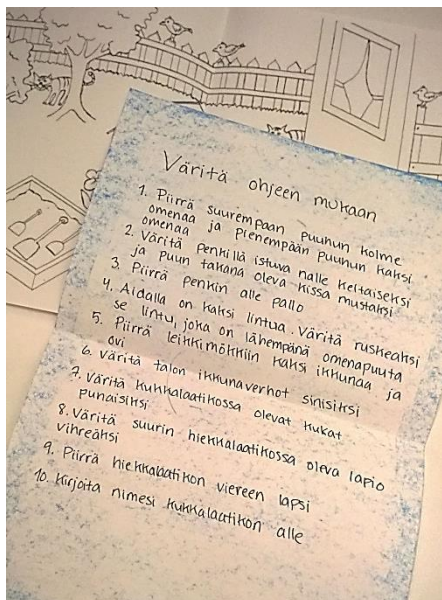 Väritä ohjeen mukaan
1. Piirrä suurempaan puuhun kolme
omenaa ja pienempään puuhun kaksi
omenaa
2. Väritä penkillä istuva nalle keltaiseksi
ja puun takana oleva kissa mustaksi
3. Piirrä penkin alle pallo
4. Aidalla on kaksi lintua. Väritä ruskeaksi
se lintu, joka on lähempänä omenapuuta
5. Piirrä leikkimökkiin kaksi ikkunaa ja
ovi
6. Väritä talon ikkunaverhot sinisiksi
7. Väritä kukkalaatikossa olevat kukat
punaisiksi
8. Väritä suurin hiekkalaatikossa oleva lapio
vihreäksi
9. Piirrä hiekkalaatikon viereen lapsi
10. Kirjoita nimesi kukkalaatikon alle